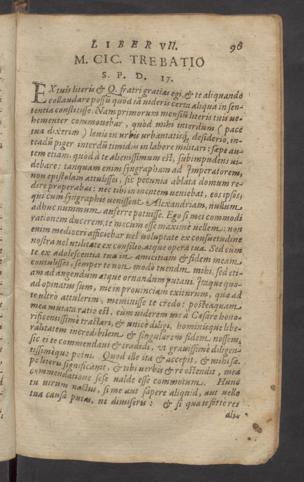 LIBER VII. 98
M. CIC. TREBATIO
S. P. D. 17.
EX tuis literis & Q. fratri gratias egi, & te aliquando
collaudare possū quod iā videris certa aliqua in sen-
tentia constitisse. Nam primorum mensiū literis tuis ve-
hementer commovebar, quod mihi interdum (pace
tua dixerim) levis in urbis urbanitatisq; desiderio, in-
terdū piger interdū timidus in labore militari: sæpe au-
tem etiam, quod à te alienissimum est, subimpudens vi-
debare: tanquam enim syngrapham ad Imperatorem,
non epistolam attulisses, sic pecunia ablata domum re-
dire properabas: nec tibi in mentem veniebat, eos ipsos,
qui cum syngraphis venissent Alexandriam, nullum
adhuc nummum auferre potuisse. Ego si mei commodi
rationem ducerem, te mecum esse maximè vellem: non
enim mediocri afficiebar vel voluptate ex consuetudine
nostra vel utilitate ex consilio atque opera tua. Sed cum
te ex adolescentia tua in amicitiam & fidem meam
contulisses, semper te non modo tuendum mihi, sed eti-
am ad augendum atque ornandum putavi. Itaque quo-
ad opinatus sum, me in provinciam exiturum, quæ ad
te ultro attulerim, meminisse te credo: posteaquam
mea mutata ratio est, cum viderem me à Cæsare hono-
rificentissimè tractari, & unicè diligi, hominisque libe-
ralitatem incredibilem & singularem fidem nossem,
sic ei te commendavi & tradidi, ut gravissimè diligen-
tissimèque potui. Quod ille ita & accepit, & mihi sæ-
pe literis significavit, & tibi verbis & re ostendit, mea
commendatione sese valde esse commotum. Hunc
tu virum nactus, si me aut sapere aliquid, aut velle
tua causa putas, ne dimiseris: & si qua te forte res
ali-